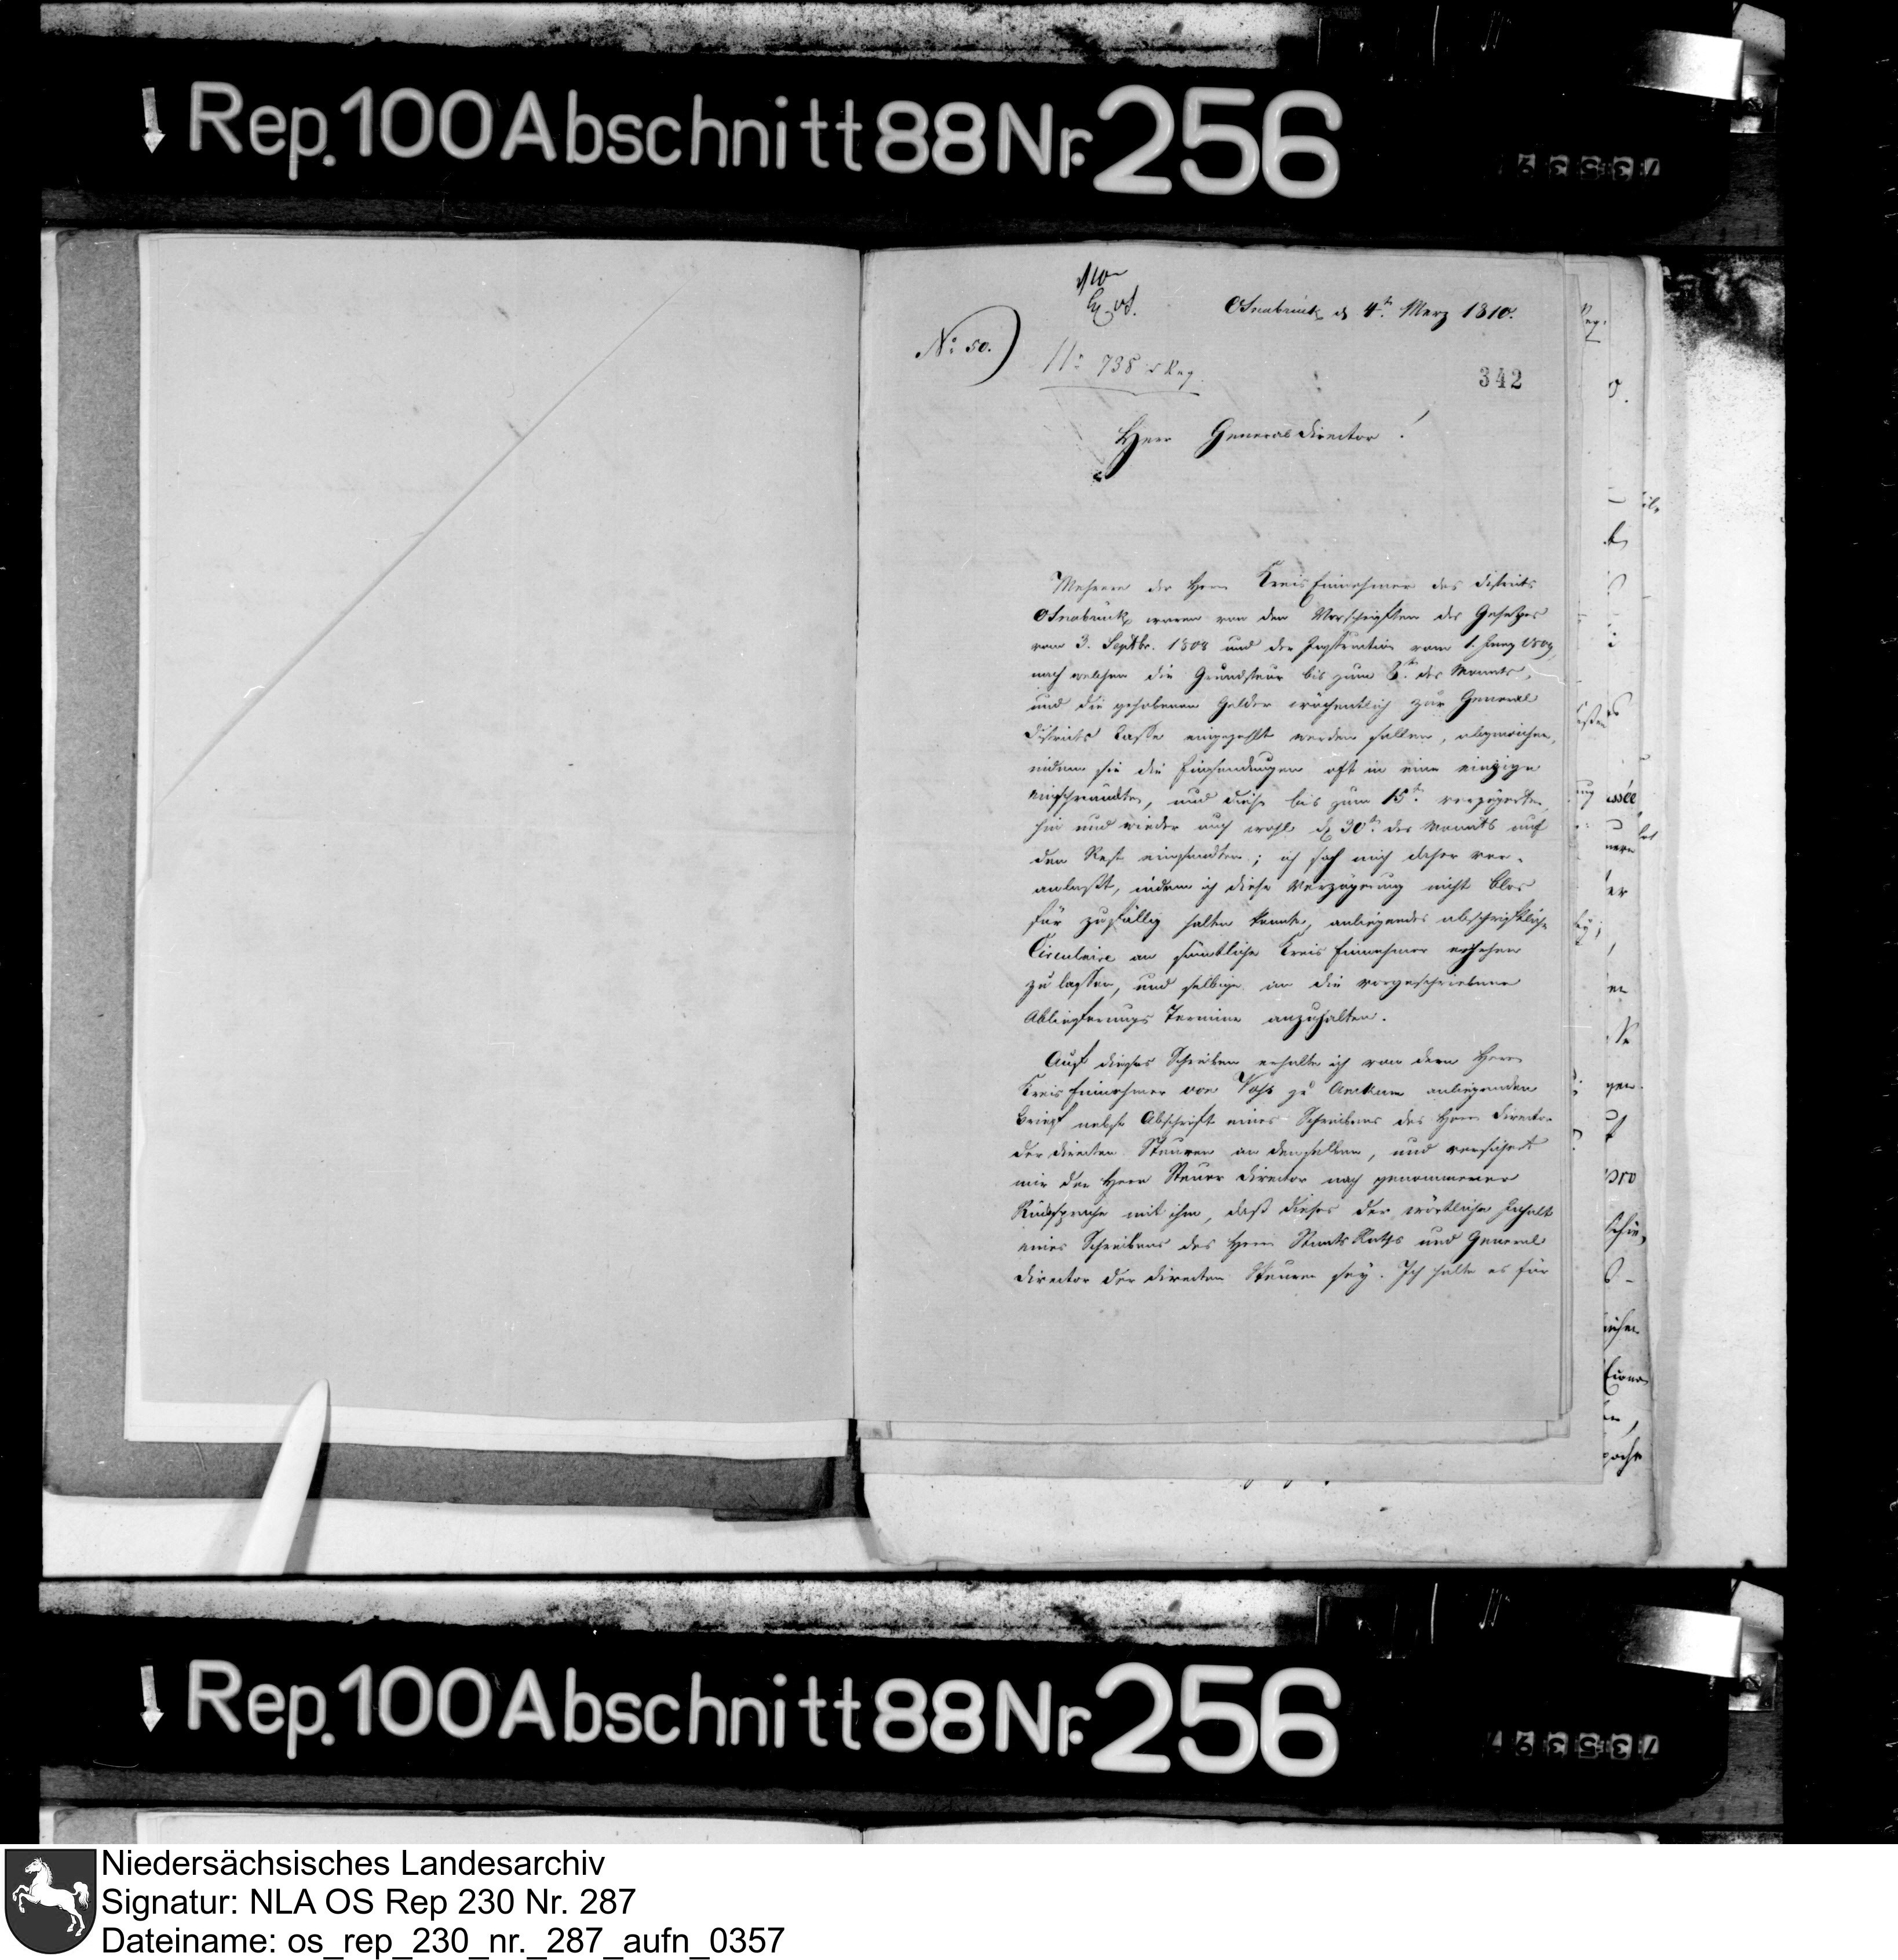 Rep. 100 Abschnitt 88 Nr. 256
Osnabrück d 4t. Merz 1810.
No: 50.
No 738
342
Herr Generaldirector!
Mehrere der Herrn Kreis Einnehmer des Districts
Osnabrück waren von den Vorschriften des Gesetzes
vom 3. Septbr. 1808 und der Instruction vom 1. 1809,
nach welchen die Grundsteur bis zum 8t. des Monats,
und die gehobenen Gelder wöchentlich zur General
Districts Casse eingezahlt werden sollen, abgewichen,
indem sie die Einsendungen oft in eine einzige
und diese bis zum 15t. verzögerten,
hin und wieder auch wohl d 30t. des Monats erst
den Rest einsandten; ich sah mich daher ver-
anlaßt, indem ich diese Verzögerung nicht blos
für zufällig halten konnte, anliegendes abschriftliche
Circulaire an sämtliche Kreis Einnehmer ergehen
zu lassen, und selbige an die vorgeschriebene
Ablieferungs Termine anzuhalten.
Auf dieses Schreiben erhalte ich von dem Herrn
Kreis Einnehmer von Voss zu anliegenden
Brief nebst Abschrift eines Schreibens des Herrn Director
der directen Steuren an denselben, und versichert
mir der Herr Steuer Director nach genommener
Rücksprache mit ihm, daß dieses der wörtliche Inhalt
eines Schreibens des Herrn Staats Raths und General
Director der directen Steuren sey. Ich halte es für
Rep. 100 Abschnitt 88 Nr. 256
Niedersächsisches Landesarchiv
Signatur: NLA OS Rep 230 Nr. 287
Dateiname: os_rep_230_nr._287_aufn_0357